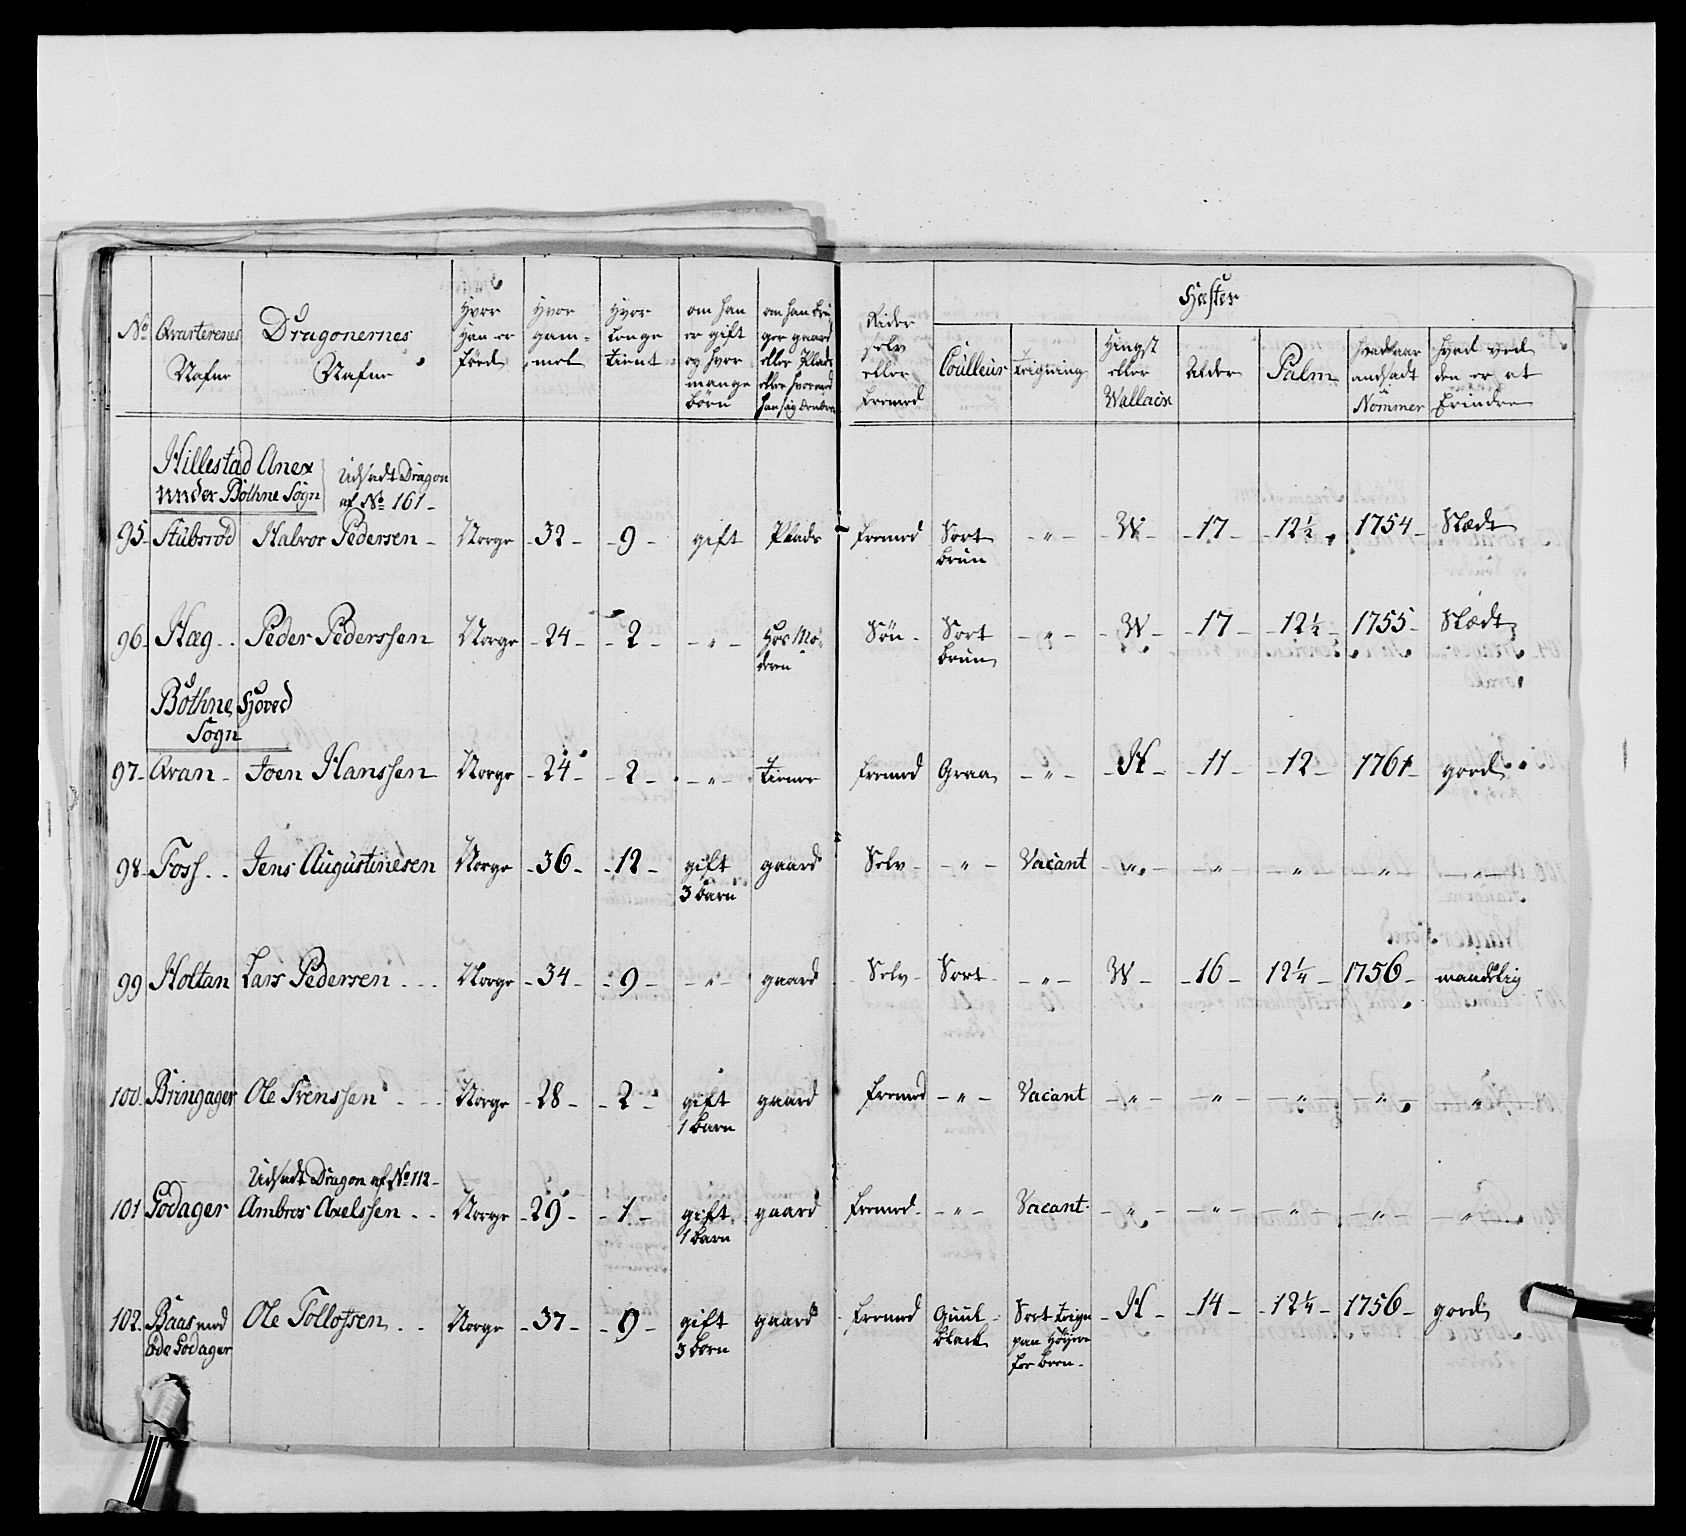 No Qvarterenes Nafne
Dragonernes Nafne
Hvor Han er föed
Hvor gam-mel
Hvor lenge tient
om han er gift og hvor mange börn
om han bru-ger gaard eller Plads eller hvormed han sig
Rider selv eller fremed
Hæster
Coulleur
Teigning
Hingst eller Wallach
Alder
Palm
hvad aar andsadt Nommer
hvad ved den er at Erindre
Hillestad Anex
under Bothne Sogn
Udsadt Dragon
af No 161 -
95- Stubsröd Halvor Pedersen - Norge - 32 - - 9 - gift Plads fremed Sort brun - " - - W - - 17 - - 12½ 1754 - Slædt
96- Hæg - - Peder Pederssen Norge - 24 - - 2 - - " - Hos Mo-deren Sön - Sort brun - " - - W - - 17 - - 12½ - 1755 - Slædt
Bothne Hoved
Sogn
97- Qvan - Joen Hanssen Norge - 24 - - 2 - - " - tiener fremed Graa - " - - H - - 11 - - 12 - 1761 - goed
98- Foss - - Jens Augustinesen Norge - 36 - - 12 - gift 3 barn gaard Selv - - " - Vacant - " - - " - - " - - " - - " -
99 Holtan Lars Pedersen - - - Norge - 34 - - 9 - - " - gaard Selv - Sort - - " - W - - 16 - 12¼ 1756 - maadelig
100- Bringager Ole Svenssen - - - Norge - 28 - - 2 - gift 1 barn gaard fremed - " - Vacant - " - - " - - " - - " - - " -
Udsadt Dragon af No 112 -
101 Godager Ambros Axelssen - - Norge - 29 - - 1 - gift 1 barn gaard fremed - - " - Vacant - " - - " - - " - - " - - " -
102- Baas med öde Godager Ole Tollofsen - - Norge - 37 - - 9 - gift 3 börn gaard fremed Guul black Sort teign paa Höyre for been - - H - - 14 - - 12¼ - 1756 - goed